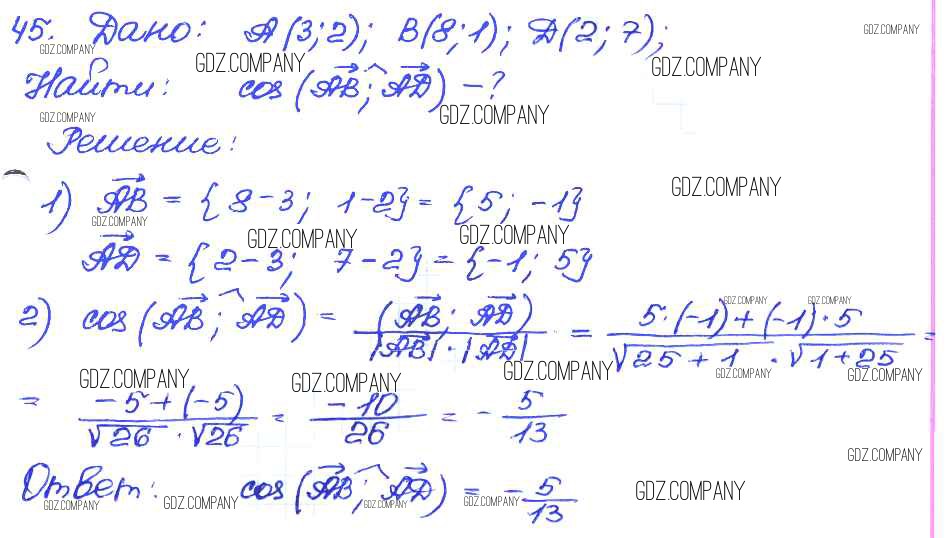 45. Дано: A(3;2); B(8;1); D(2;7);
GDZ.COMPANY GDZ.COMPANY GDZ.COMPANY GDZ.COMPANY
Найти: cos(AB; AD) - ?
GDZ.COMPANY GDZ.COMPANY
Решение:
GDZ.COMPANY
1) AB = {8-3; 1-2} = {5; -1}
GDZ.COMPANY GDZ.COMPANY GDZ.COMPANY
AD = {2-3; 7-2} = {-1; 5}
GDZ.COMPANY GDZ.COMPANY
2) cos(AB; AD) = (AB; AD) / |AB|·|AD| = 5·(-1)+(-1)·5 / √25+1 · √1+25 =
GDZ.COMPANY GDZ.COMPANY GDZ.COMPANY GDZ.COMPANY GDZ.COMPANY
= -5+(-5) / √26 · √26 = -10 / 26 = - 5 / 13
GDZ.COMPANY
Ответ: cos(AB; AD) = - 5 / 13
GDZ.COMPANY GDZ.COMPANY GDZ.COMPANY GDZ.COMPANY GDZ.COMPANY